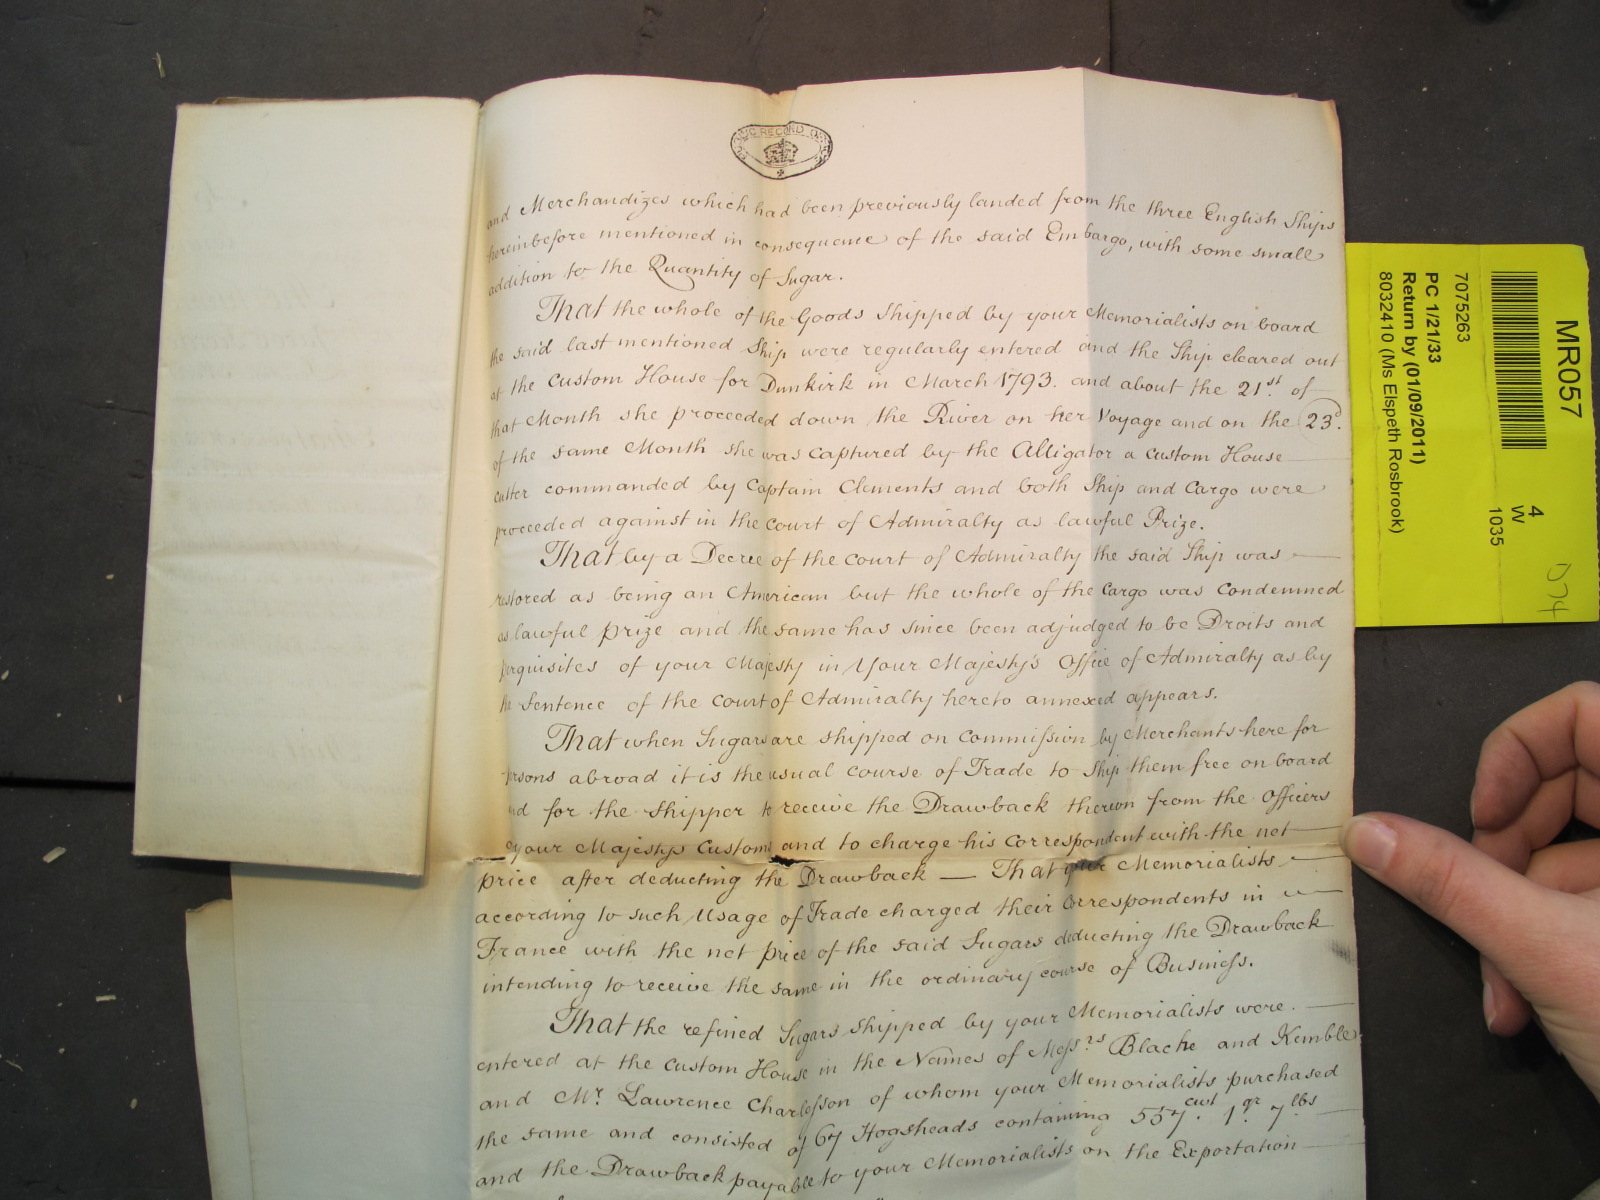 PUBLIC RECORD OFFICE
and Merchandizes which had been previously landed from the three English Ships
hereinbefore mentioned in consequence of the said Embargo, with some small
addition to the Quantity of Sugar.
That the whole of the Goods shipped by your Memorialists on board
the said last mentioned Ship were regularly entered and the Ship cleared out
at the Custom House for Dunkirk in March 1793. and about the 21st of
that Month she proceeded down the River on her Voyage and on the 23d.
of the same Month she was captured by the Alligator a Custom House
cutter commanded by Captain Clements and both Ship and Cargo were
proceeded against in the Court of Admiralty as lawful Prize.
That by a Decree of the Court of Admiralty the said Ship was
restored as being an American but the whole of the Cargo was condemned
as lawful prize and the same has since been adjudged to be Droits and
perquisites of your Majesty in Your Majesty's Office of Admiralty as by
the Sentence of the Court of Admiralty hereto annexed appears.
That when Sugars are shipped on Commission by Merchants here for
persons abroad it is the usual course of Trade to Ship them free on board
and for the Shipper to receive the Drawback thereon from the Officers
your Majestys Customs and to charge his Correspondent with the net
price after deducting the Drawback — That your Memorialists
according to such Usage of Trade charged their Correspondents in
France with the net price of the said Sugars deducting the Drawback
intending to receive the same in the ordinary course of Business.
That the refined Sugars shipped by your Memorialists were.
entered at the Custom House in the Names of Messrs Blache and Kemble
and Mr. Lawrence Charlesson of whom your Memorialists purchased
the same and consisted of 67 Hogsheads containing 557 cwt. 1 qr 7 lbs
and the Drawback payable to your Memorialists on the Exportation
MR057
4
W
1035
7075263
PC 1/21/33
Return by (01/09/2011)
8032410 (Ms Elspeth Rosbrook)